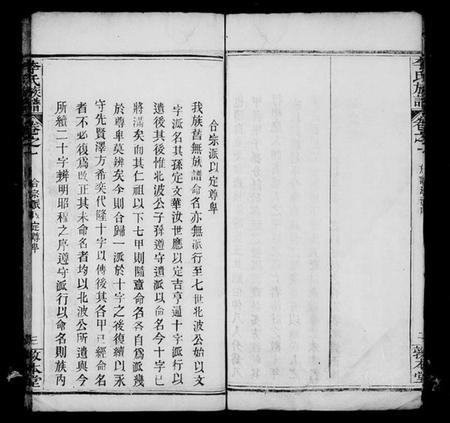 李氏族譜
卷之一
敦本堂
合宗派以定尊卑
我族舊無族譜命名亦無派行至七世北波公始以文
字派名其孫定文華汝世應以定吉亨通十字派行以
遺後其後惟北波公子孫遵守遺派以命名今十字已
將滿矣而其仁祖以下七甲則隨意命名各自爲派幾
於尊卑莫辨矣今則合歸一派於十字之後復續以永
守先賢澤方希奕代隆十字以傳後其各甲已經命名
者不必復爲改正其未命名者均以北波公所遺與今
所續二十字辨明昭程之序遵守派行以命名則族內
李氏族譜
卷之一
合宗派以定尊卑
三
敦本堂